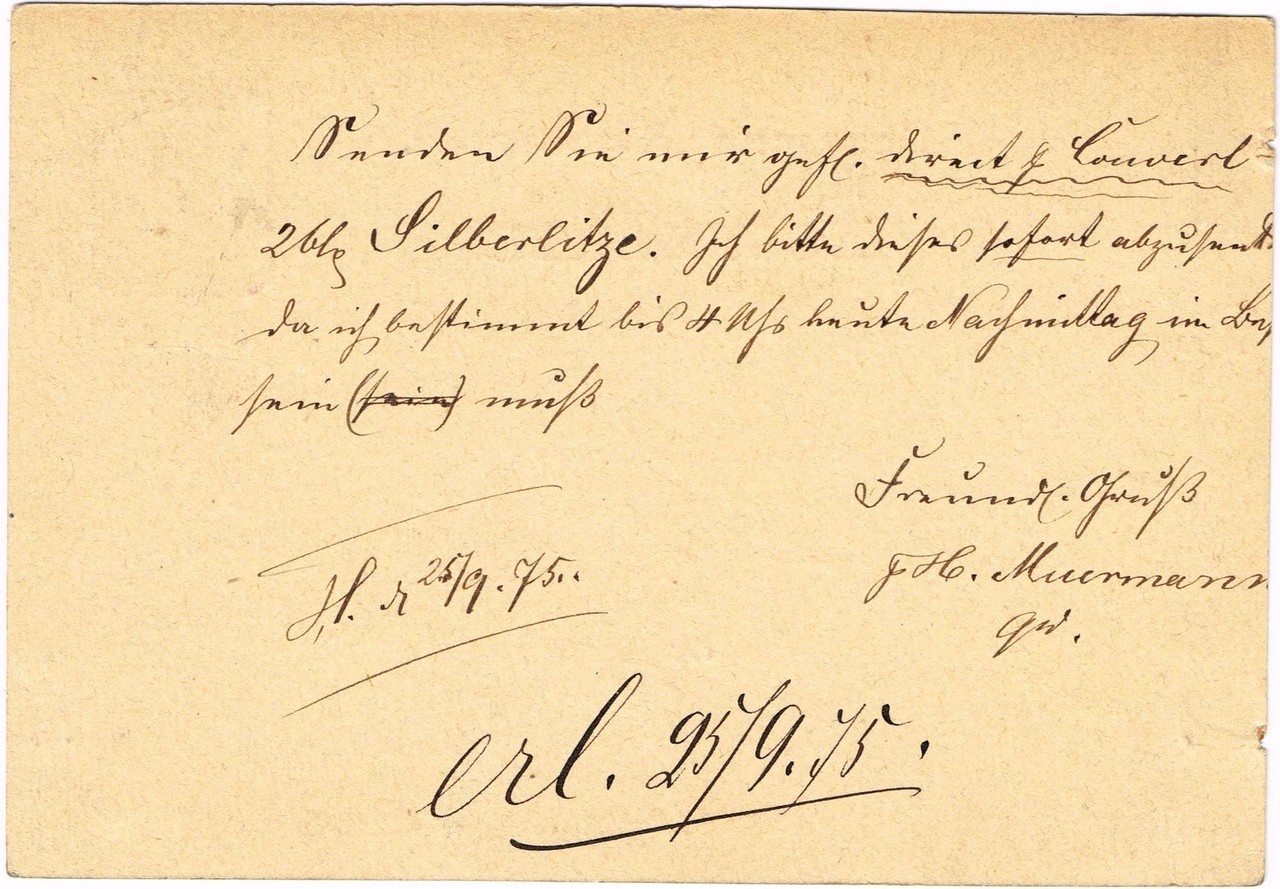 Senden Sie mir gefl. direct p Couvert
Silberlitze. Ich bitte dieses sofort abzusend
da ich bestimmt bis 4 Uhr heute Nachmittag im Bes
sein (sein) muß
Freundl. Gruß
H. Muermann
H. d 25/9. 75.
erl. 25/9. 75.